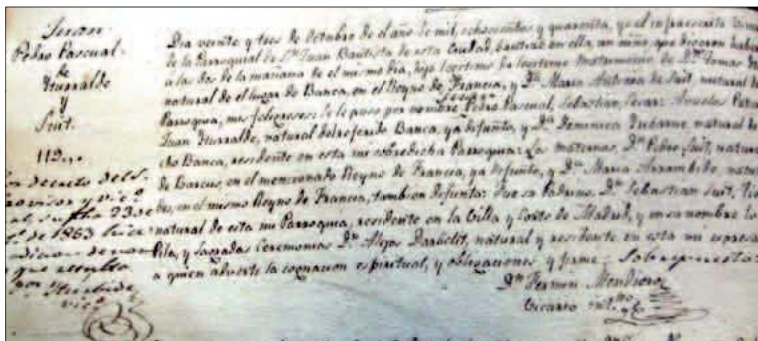 Juan
Pedro Pascual
de
Yturralde
y
Suit.
112..
Dia veinte y tres de Octubre de el año de mil, ochocientos, y quarenta, yo el infraescrito Vica
de la Parroquial de Sn. Juan Bautista de esta Ciudad, bautizé en ella, un niño, que dixeron habia
a las dos de la mañana de el mismo dia, hijo legitimo de legitimo matrimonio, de Dn. Tomas
natural de el lugar de Banca, en el Reyno de Francia, y Da. Maria Antonia de Suit, natural de
Parroquia, mis feligreses: Se le puso por nombre Pedro Pascual, Sebastian, Cesar: Avuelos Pater
Juan Yturralde, natural del referido Banca, ya difunto, y Da. Domenica Ynharne, natural de
cho Banca, residente en esta mi sobredicha Parroquia: Los maternos, Dn. Pedro Suit, natur
de Barcus, en el mencionado Reyno de Francia, ya defunto, y Da. Maria Arrambide, natu
en el mismo Reyno de Francia, tambien defunta: Fue su Padrino Dn. Sebastian Suit, Tio
natural de esta mi Parroquia, residente en la Villa y Corte de Madrid, y en su nombre
Pila, y Sagradas Ceremonias Dn. Alejos natural y residente en esta mi expresa
a quien adverti la cognacion espiritual, y obligaciones y firme: Sobrepuesto:
Dn. Fermin Mendioroz
Vicario
decreto del S.
Provisor y Vic.
fha 23 de
de 1863 hice
que resulta
por Yturbide
vico.